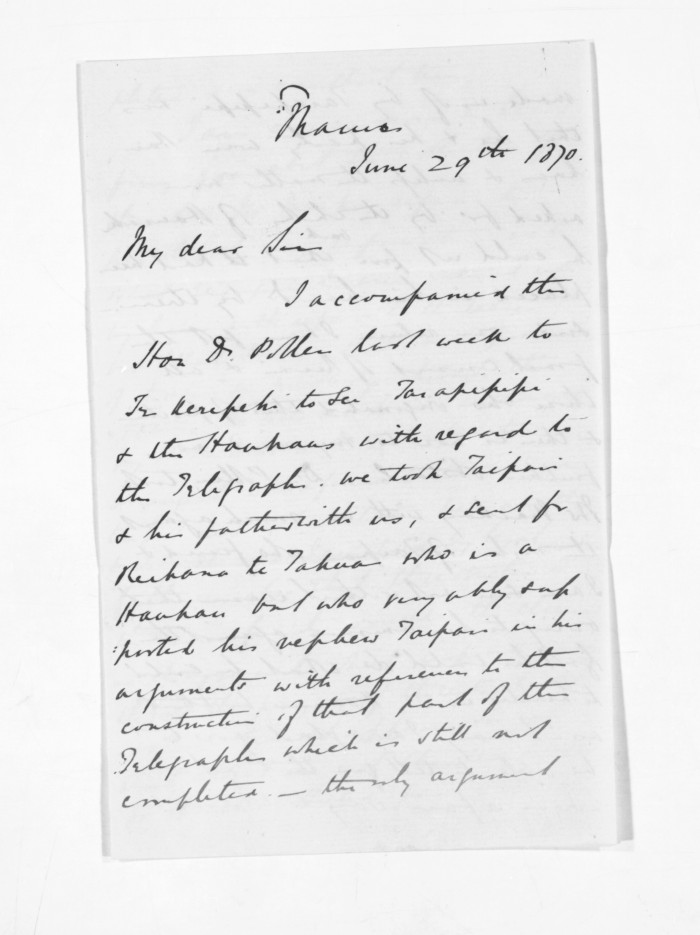 Thames
June 29th 1870.
My dear Sir
I accompanied the
Hon Dr. Pollen last week to
Te Kerepehi to see Tarapipipi
& the Hauhaus with regard to
the Telegraph. we took Taipari
& his father with us, & sent for
Reihana te Tahua who is a
Hauhau but who very ably sup
:ported his nephew Taipari in his
arguments with reference to the
construction of that part of the
Telegraph which is still not
completed. — the only argument